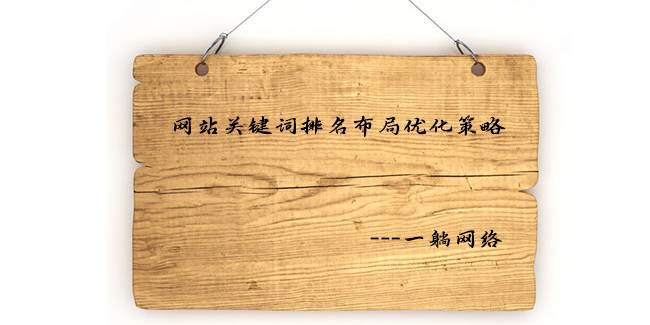 网站关键词排名布局优化策略
---一躺网络